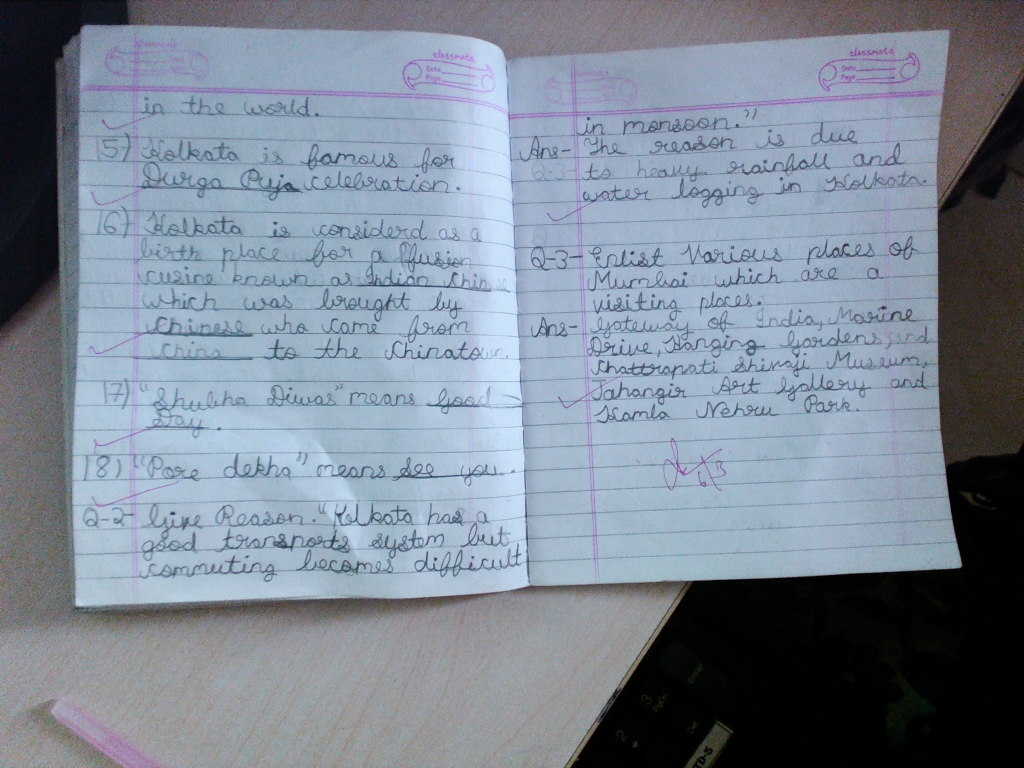 classmate
Date
Page
in the world.
15) Kolkata is famous for
Durga Puja celebration.
16) Kolkata is considerd as a
birth place for a ffusion
cusine known as Indian Chinese
which was brought by
Chinese who came from
China to the Chinatown.
17) "Shubha Diwas" means Good
Day.
18) "Pore dekha" means see you.
Q-2- Give Reason. "Kolkata has a
good transports system but
commuting becomes difficult
classmate
Date
Page
in monsoon."
Ans- The reason is due
to heavy rainfall and
water logging in Kolkata.
Q-3- Enlist Various places of
Mumbai which are a
visiting places.
Ans- Gateway of India, Marine
Drive, Hanging Gardens, and
Chattrapati Shivaji Museum,
Jahangir Art Gallery and
Kamla Nehru Park.
TD-5